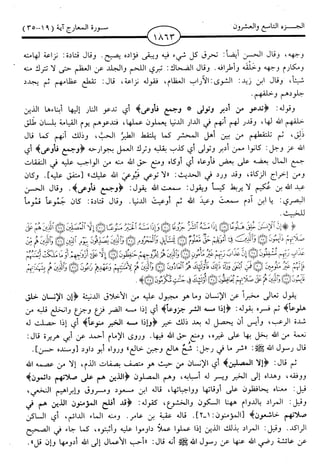 الجزء التاسع والعشرون
١٨٦٣
سورة المعارج آية (١٩-٣٥)
وجهه، وقال الحسن أيضاً: تحرق كل شيء فيه ويبقى فؤاده يصيح. وقال قتادة: نزاعة لهامته
ومكارم وجهه وخلقه وأطرافه. وقال الضحاك: تبري اللحم والجلد عن العظم حتى لا تترك منه
شيئاً. وقال ابن زيد: الشوى: الآراب العظام، فقوله نزاعة، قال: تقطع عظامهم ثم يجدد
جلودهم وخلقهم.
وقوله: ﴿تدعو من أدبر وتولى * وجمع فأوعى﴾ أي تدعو النار إليها أبناءها الذين
خلقهم الله لها، وقدر لهم أنهم في الدار الدنيا يعملون عملها، فتدعوهم يوم القيامة بلسان طلق
ذلق، ثم تلتقطهم من بين أهل المحشر كما يلتقط الطير الحب، وذلك أنهم كما قال
الله عز وجل: كانوا ممن أدبر وتولى أي كذب بقلبه وترك العمل بجوارحه ﴿وجمع فأوعى﴾ أي
جمع المال بعضه على بعض فأوعاه أي أوكاه ومنع حق الله منه من الواجب عليه في النفقات
ومن إخراج الزكاة، وقد ورد في الحديث: «لا توعي فيوعي الله عليك» [متفق عليه]. وكان
عبد الله بن عكيم لا يربط كيساً ويقول: سمعت الله يقول: ﴿وجمع فأوعى﴾. وقال الحسن
البصري: يا ابن آدم سمعت وعيد الله ثم أوعيت الدنيا. وقال قتادة: كان جموعاً قموماً
للخبيث.
يقول تعالى مخبراً عن الإنسان وما هو مجبول عليه من الأخلاق الدنيئة ﴿إن الإنسان خلق
هلوعاً﴾ ثم فسره بقوله: ﴿إذا مسه الشر جزوعاً﴾ أي إذا مسه الضر فزع وجزع وانخلع قلبه من
شدة الرعب، وأيس أن يحصل له بعد ذلك خير ﴿وإذا مسه الخير منوعاً﴾ أي إذا حصلت له
نعمة من الله بخل بها على غيره، ومنع حق الله فيها. وروى الإمام أحمد عن أبي هريرة قال:
قال رسول الله ﷺ: «شر ما في رجل: شح هالع وجبن خالع» ورواه أبو داود [وسنده حسن].
ثم قال: ﴿إلا المصلين﴾ أي الإنسان من حيث هو متصف بصفات الذم، إلا من عصمه الله
ووفقه، وهداه إلى الخير ويسر له أسبابه، وهم المصلون ﴿الذين هم على صلاتهم دائمون﴾
قيل: معناه يحافظون على أوقاتها وواجباتها، قاله ابن مسعود ومسروق وإبراهيم النخعي،
وقيل: المراد بالدوام ههنا السكون والخشوع، كقوله: ﴿قد أفلح المؤمنون الذين هم في
صلاتهم خاشعون﴾ [المؤمنون: ١-٢]. قاله عقبة بن عامر. ومنه الماء الدائم، أي الساكن
الراكد. وقيل: المراد بذلك الذين إذا عملوا عملاً داوموا عليه وأثبتوه، كما جاء في الصحيح
عن عائشة رضي الله عنها عن رسول الله ﷺ أنه قال: «أحب الأعمال إلى الله أدومها وإن قل».